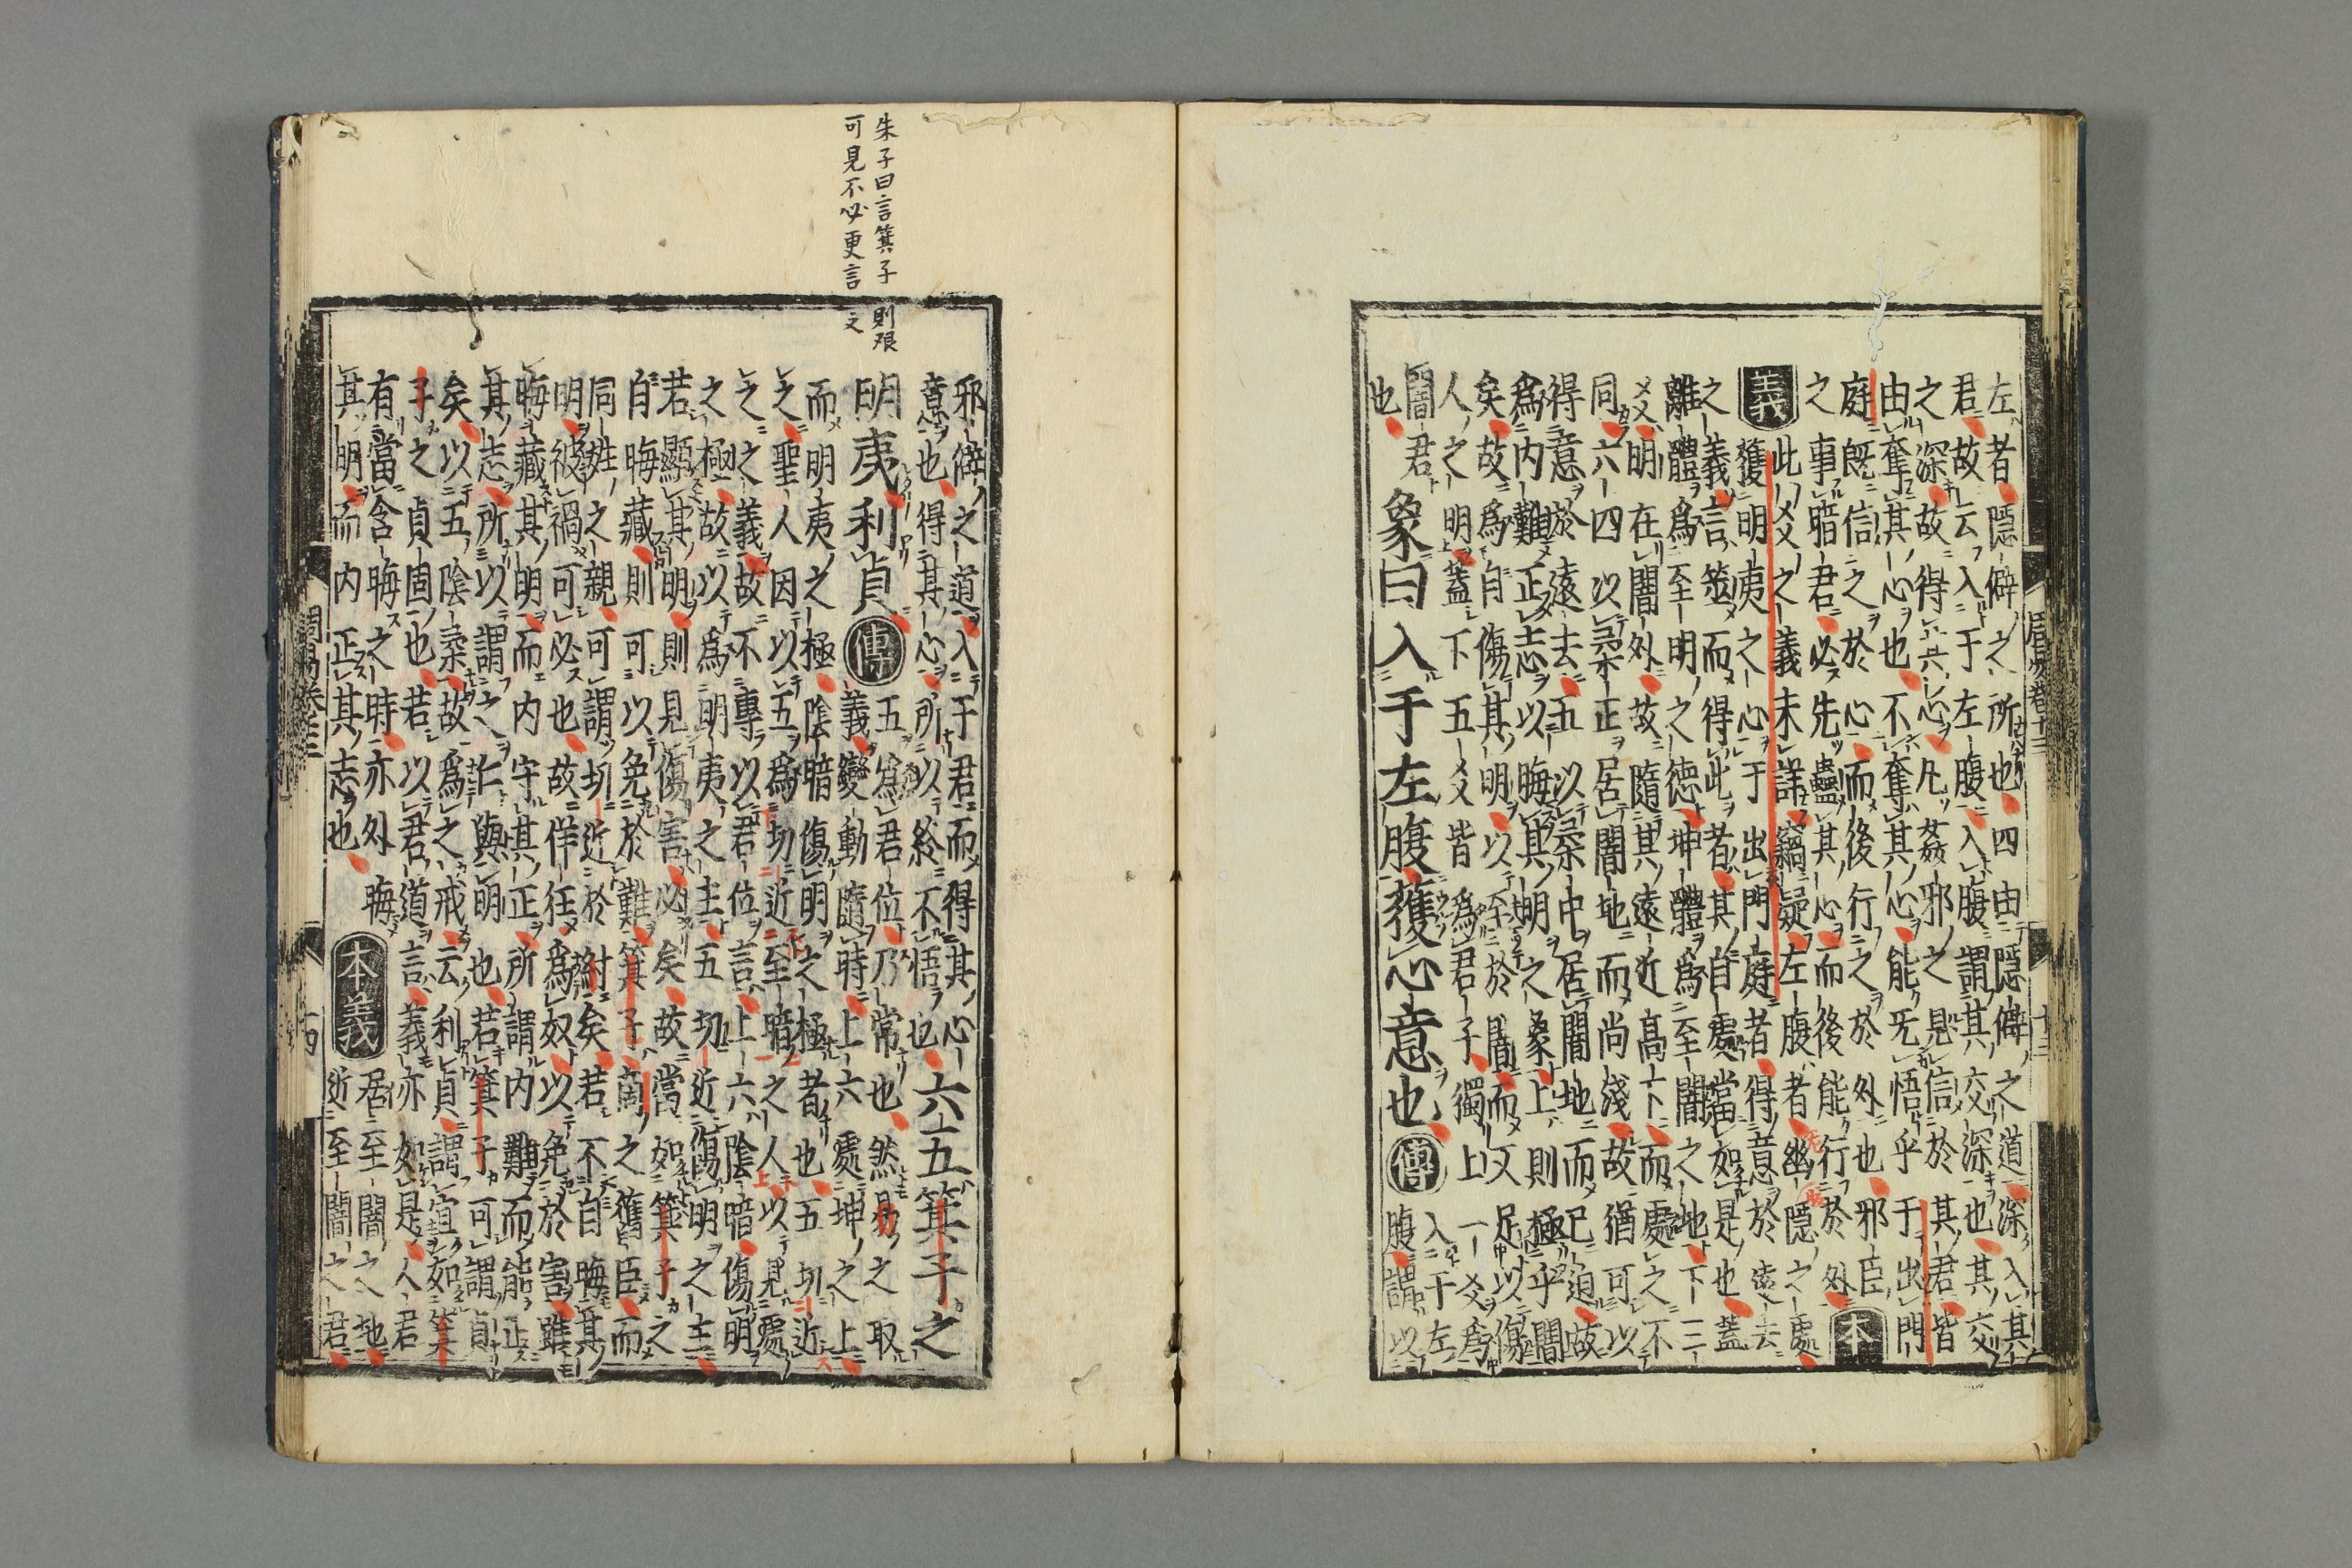 周易卷十三
十三
左者隱僻之所也四由隱僻之道深入其
君故云入于左腹入腹謂其交深也其交
之深故得其心凡姦邪之見信於其君皆
由奪其心也不奪其心能无悟乎于出門
庭既信之於心而後行之於外也邪臣
之事暗君必先蠱其心而後能行於外
本義
此爻之義未詳竊疑左腹者幽隱之處
獲明夷之心于出門庭者得意於遠去
之義言筮而得此者其自處當如是也蓋
離體為至明之德坤體為至闇之地下三
爻明在闇外故隨其遠近高下而處之不
同六四以柔正居闇地而尚淺故猶可以
得意於遠去五以柔中居闇地而已迫故
為内難正志以晦其明之象上則極乎闇
矣故為自傷其明以至於闇而又足以傷
人之明蓋下五爻皆為君子獨上一爻為
闇君也
象曰入于左腹獲心意也
傳
入于左
腹謂以
朱子曰言箕子則艱
可見不必更言之
邪僻之道入于君而得其心
意也得其心所以終不悟也
六五箕子之
明夷利貞
傳
五為君位乃常也然易之取
義變動隨時上六處坤之上
而明夷之極陰暗傷明之極者也五切近
之聖人因以五為切近至暗之人以見處
之之義故不專以君位言上六陰暗傷明
之極故以為明夷之主五切近傷明之主
若顯其明則見傷害必矣故當如箕子之
自晦藏則可以免於難箕子商之舊臣而
同姓之親可謂切近於紂矣若不自晦其
明被禍可必也故佯狂為奴以免於害雖
晦藏其明而内守其正所謂内難而能正
其志所以謂之仁與明也若箕子可謂貞
矣以五陰柔故為之戒云利貞謂宜如箕
子之貞固也若以君道言義亦如是人君
有當含晦之時亦外晦
其明而内正其志也
本義
居至闇之地
近至闇之君